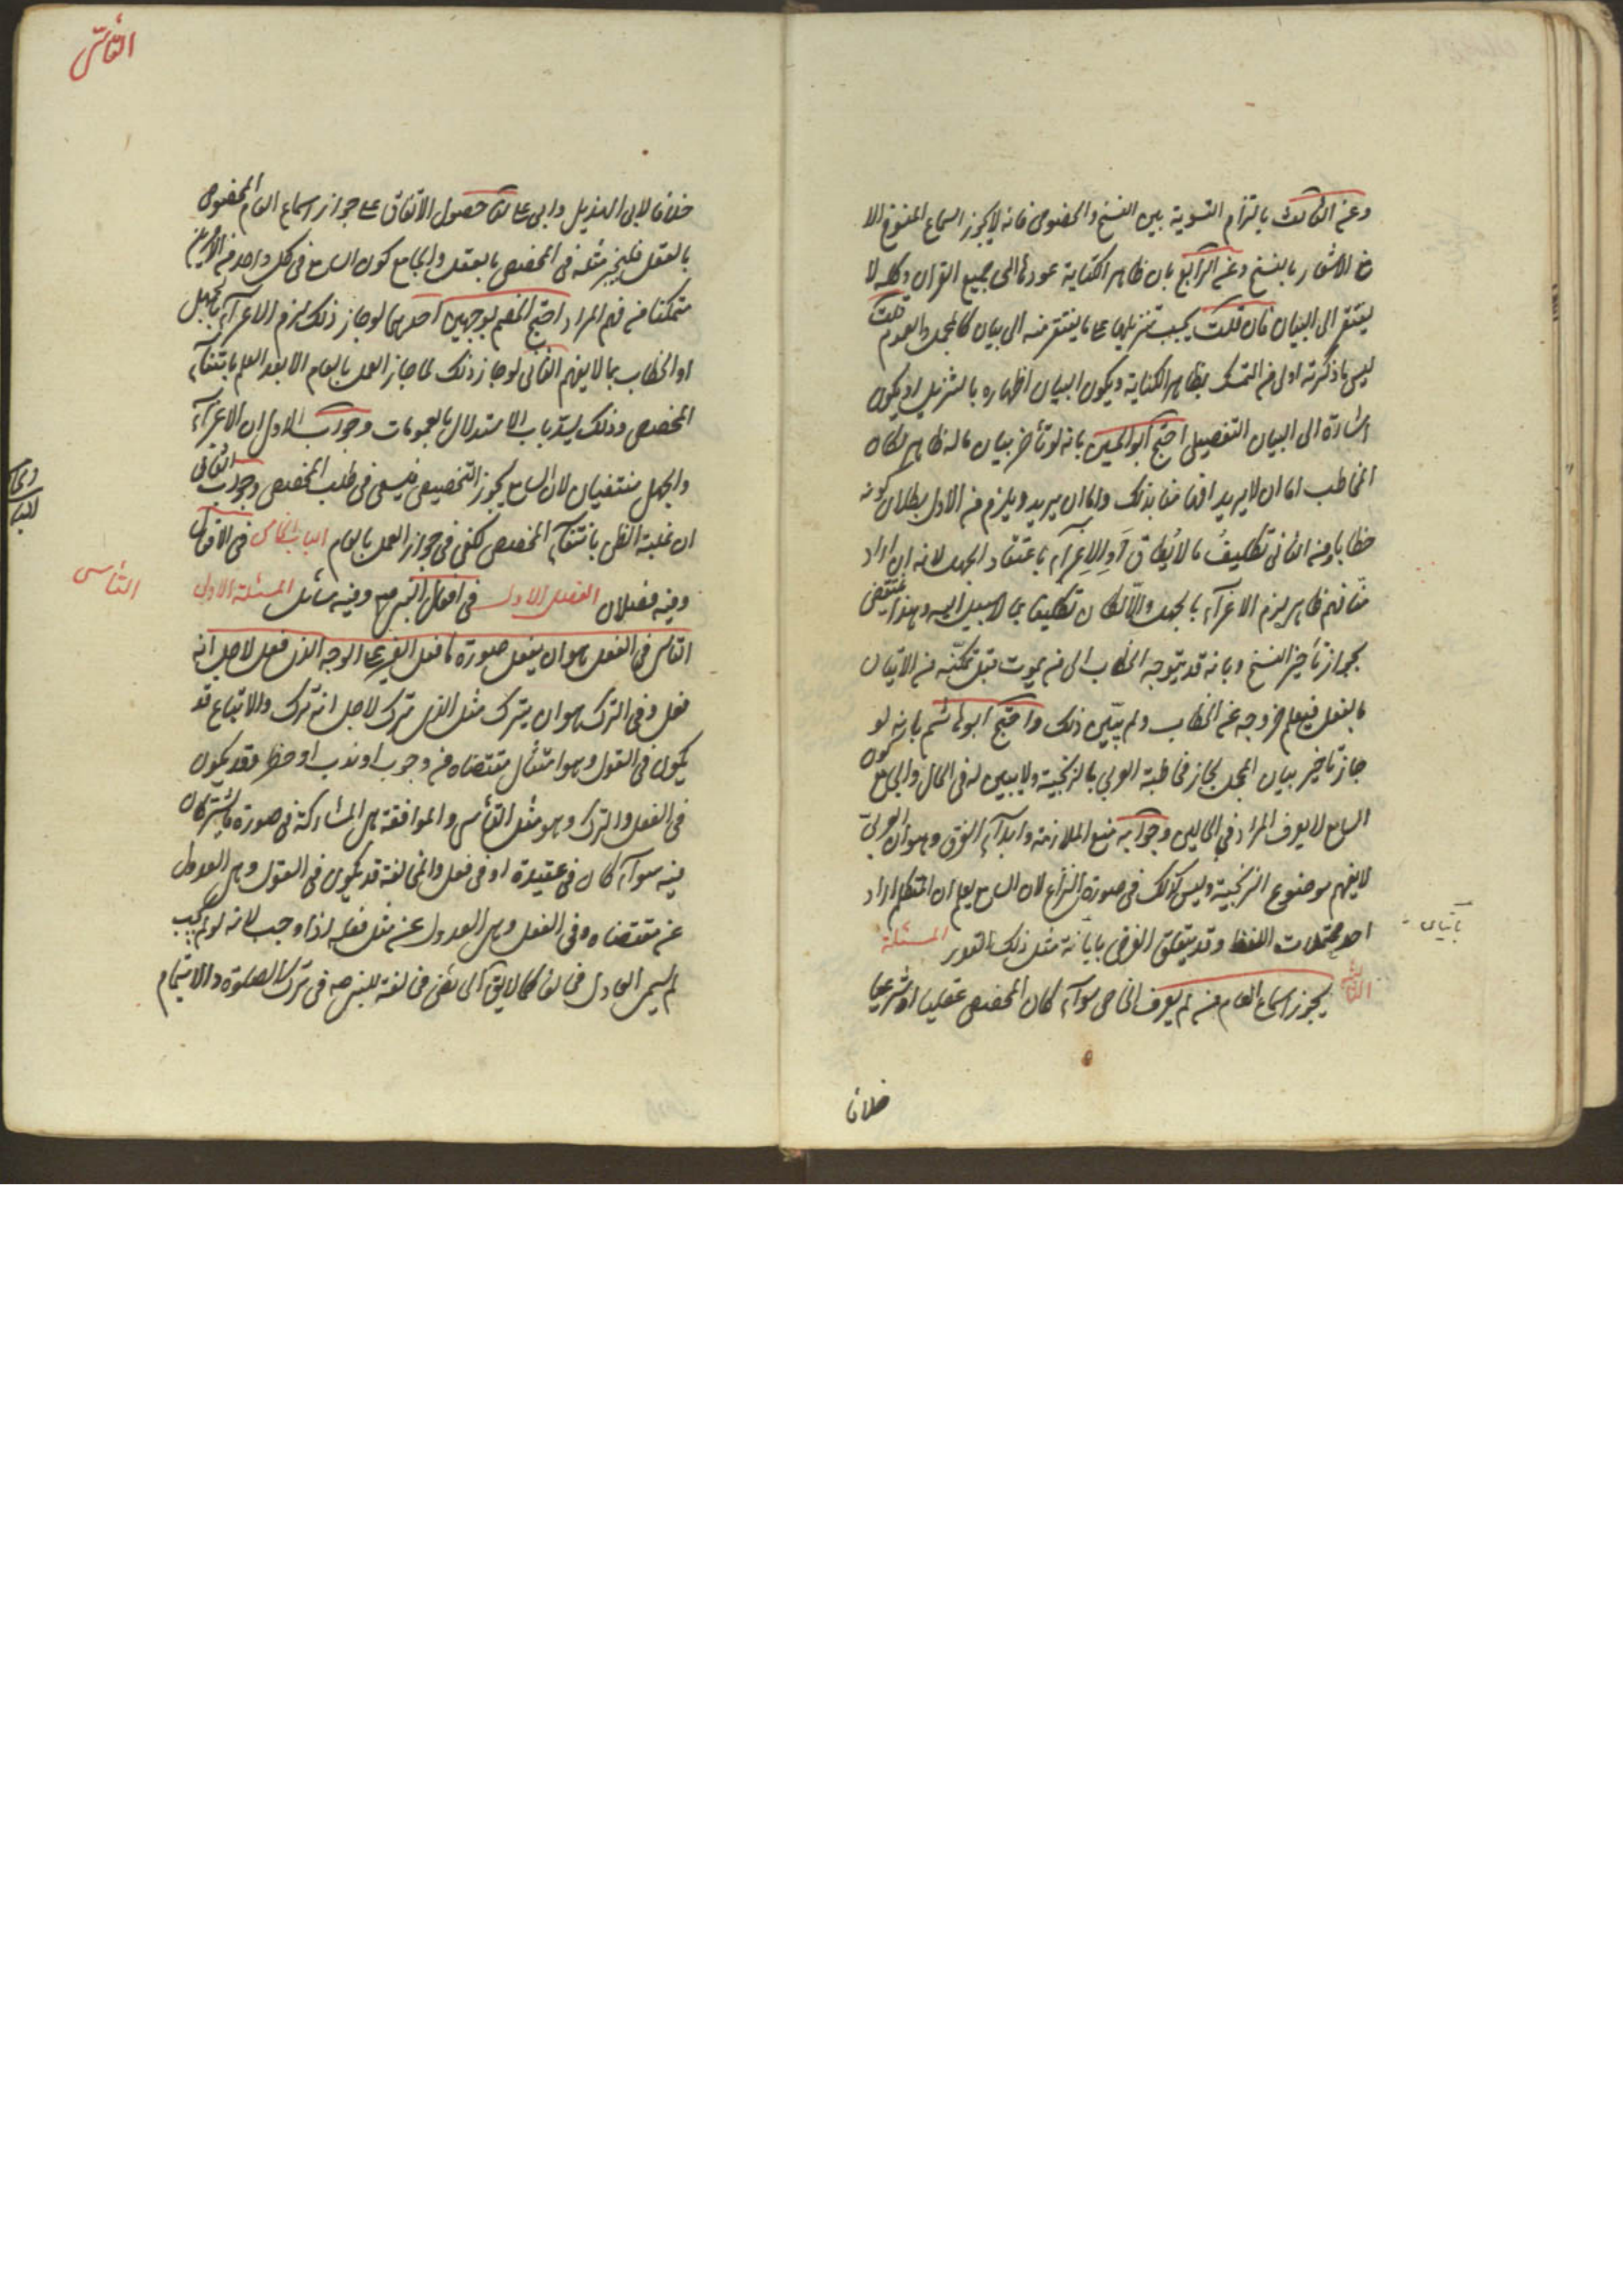 وعن الثالث بالتزام التسوية بين النسخ والخصوص فانه لا يجوز اسماع المنسوخ الا
مع الاشعار بالنسخ وعن الرابع بان ظاهر الكناية عودها الى جميع القران وكله لا
يفتقر الى البيان فان قلت يجب تنزيلها على ما يفتقر منه الى بيان كالمجمل والعموم قلت
ليس ما ذكرته اولى من التمسك بظاهر الكناية ويكون البيان اظهاره بالتنزيل او يكون
اشارة الى البيان التفصيلى احتج ابو الحسين بانه لو تأخر بيان ما له ظاهر لكان
المخاطب اما ان لا يريد افهامنا بذلك واما ان يريد ويلزم من الاول بطلان كونه
خطابا ومن الثانى تكليف ما لا يطاق او الاغراء باعتقاد الجهل لانه ان اراد
منا فهم ظاهره لزم الاغراء بالجهل والا لكان تكليفا بما لا سبيل اليه وهذا ينتقض
بجواز تأخير النسخ وبانه قد يتوجه الخطاب الى من يموت قبل تمكنه من الاتيان
بالفعل فيعلم خروجه عن الخطاب ولم يتبين ذلك واحتج ابو هاشم بانه لو
جاز تأخير بيان المجمل لجاز مخاطبة العربي بالزنجية ولا يبين له فى الحال والجامع كون
السامع لا يعرف المراد في الحالين وجوابه منع الملازمة وابداء الفرق وهو ان العربي
لا يفهم موضوع الزنجية وليس كذلك فى صورة النزاع لان السامع يعلم ان المتكلم اراد
احد محتملات اللفظ وقد يتعلق الغرض بابانة مثل ذلك القدر المسئلة
الثامنة يجوز اسماع العام من لم يعرف الخاص سواء كان المخصص عقليا او شرعيا
خلافا
خلافا لابى الهذيل وابى على لنا حصول الاتفاق على جواز اسماع العام المخصوص
بالعقل فليجز مثله فى المخصص بالعقل والجامع كون السامع فى كل واحد من الامرين
متمكنا من فهم المراد احتج الخصم بوجهين احدهما لو جاز ذلك لزم الاغراء بالجهل
او الخطاب بما لا يفهم الثانى لو جاز ذلك لما جاز العمل بالعام الا بعد العلم بانتفاء
المخصص وذلك يسد باب الاستدلال بالعمومات وجواب الاول ان الاغراء
والجهل منتفيان لان السامع يجوز التخصيص فيسعى فى طلب المخصص وجواب الثانى
ان غلبة الظن بانتفاء المخصص تكفى فى جواز العمل بالعام الباب الخامس فى الافعال
وفيه فصلان الفصل الاول فى افعال النبى صم وفيه مسائل المسئلة الاولى
التأسى فى الفعل هو ان يفعل صورة ما فعل الغير على الوجه الذى فعل لاجل انه
فعل وفى الترك هو ان يترك مثل الذى ترك لاجل انه ترك والاتباع قد
يكون فى القول وهو امتثال مقتضاه من وجوب او ندب او حظر وقد يكون
فى الفعل والترك وهو مثل التأسى والموافقة هى المشاركة فى صورة ما يشتركان
فيه سواء كان فى عقيدة او فى فعل والمخالفة قد يكون فى القول وهى العدول
عن مقتضاه وفى الفعل وهى العدول عن مثل فعله اذا وجب لانه لو لم يجب
لم يسم العادل مخالفا كما لا يق الحائض مخالفة للنبى صم فى ترك الصلوة والائتمام
التأسى
التأسى